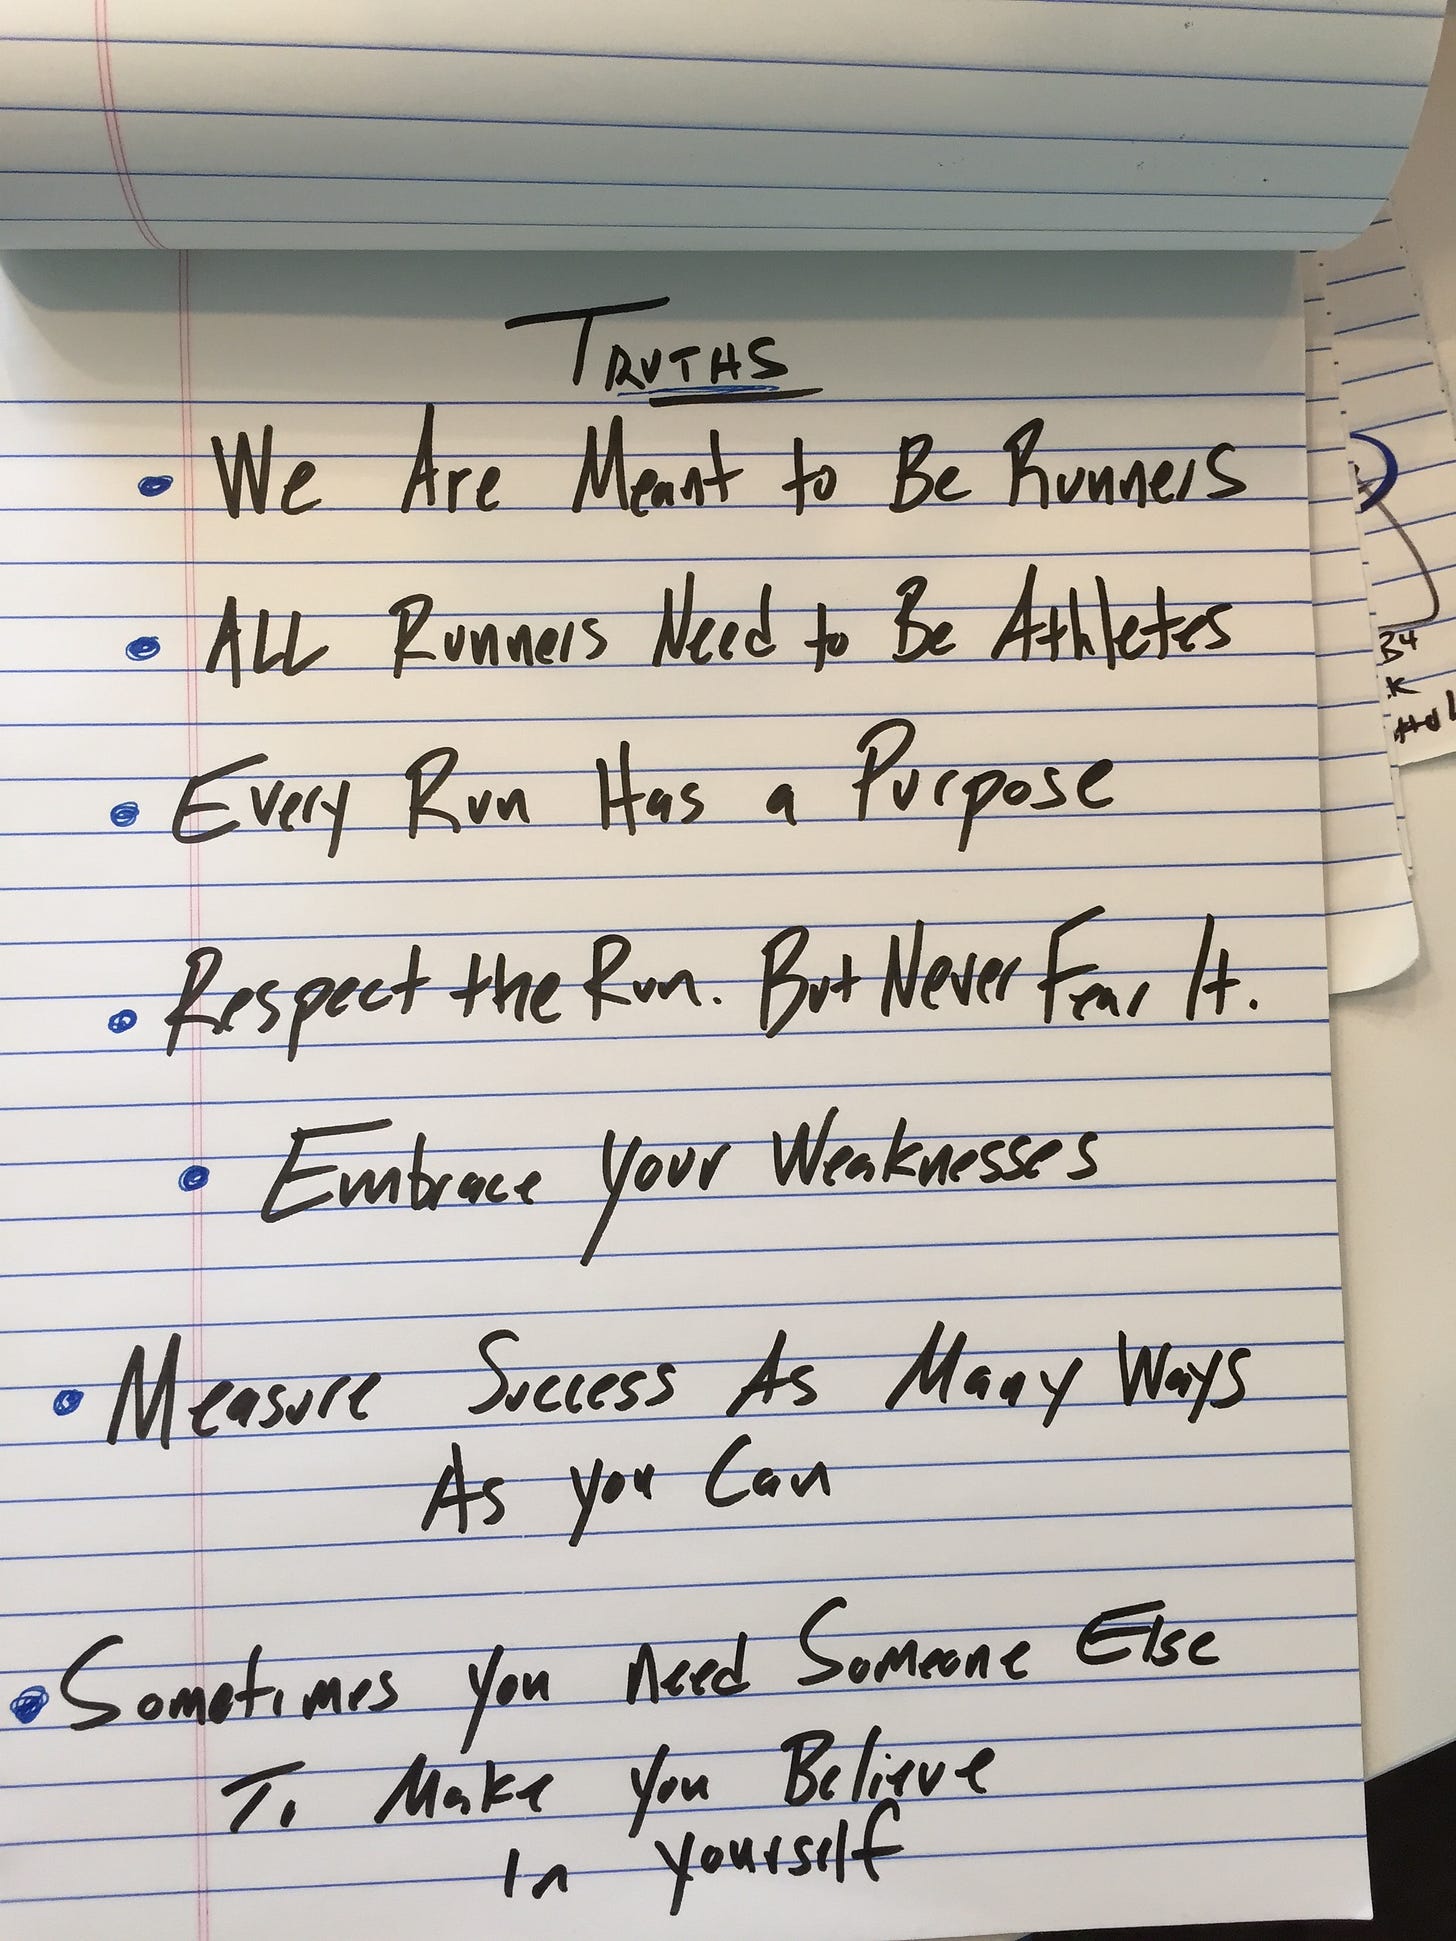 TRUTHS
• We Are Meant to Be Runners
• ALL Runners Need to Be Athletes
• Every Run Has a Purpose
• Respect the Run. But Never Fear It.
• Embrace Your Weaknesses
• Measure Success As Many Ways
As you Can
• Sometimes you need Someone Else
To Make you Believe
In yourself
34
K